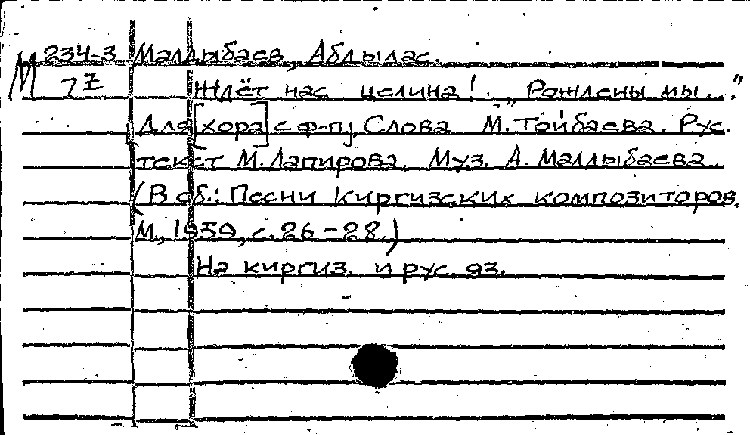 М 234-3 Малдыбаев, Абдылас.
7Z Ждёт нас целина! „Рождены мы..."
Для [хора] с ф-п. Слова М. Тойбаева. Рус.
текст М. Лапирова. Муз. А. Малдыбаева.
(В сб.: Песни киргизских композиторов.
М., 1959, с. 26-28.)
На киргиз. и рус. яз.